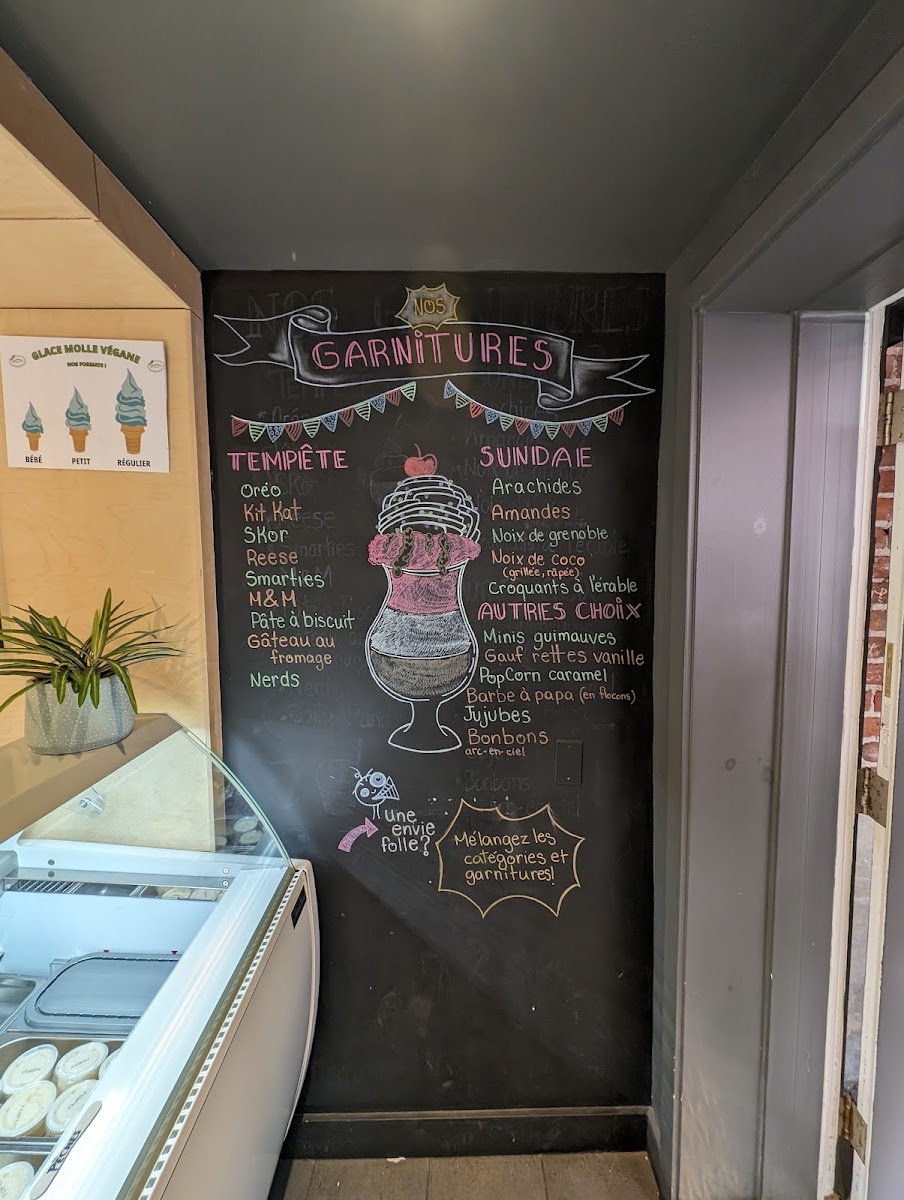 GLACE MOLLE VÉGANE
NOS FORMATS !
BÉBÉ
PETIT
RÉGULIER
NOS
GARNITURES
TEMPÊTE
Oréo
Kit Kat
SKor
Reese
Smarties
M&M
Pâte à biscuit
Gâteau au
fromage
Nerds
SUNDAE
Arachides
Amandes
Noix de grenoble
Noix de coco
(grillée, râpée)
Croquants à l'érable
AUTRES CHOIX
Minis guimauves
Gaufrettes vanille
PopCorn caramel
Barbe à papa (en flocons)
Jujubes
Bonbons
arc-en-ciel
une
envie
folle?
Mélangez les
catégories et
garnitures!
PÊCHES